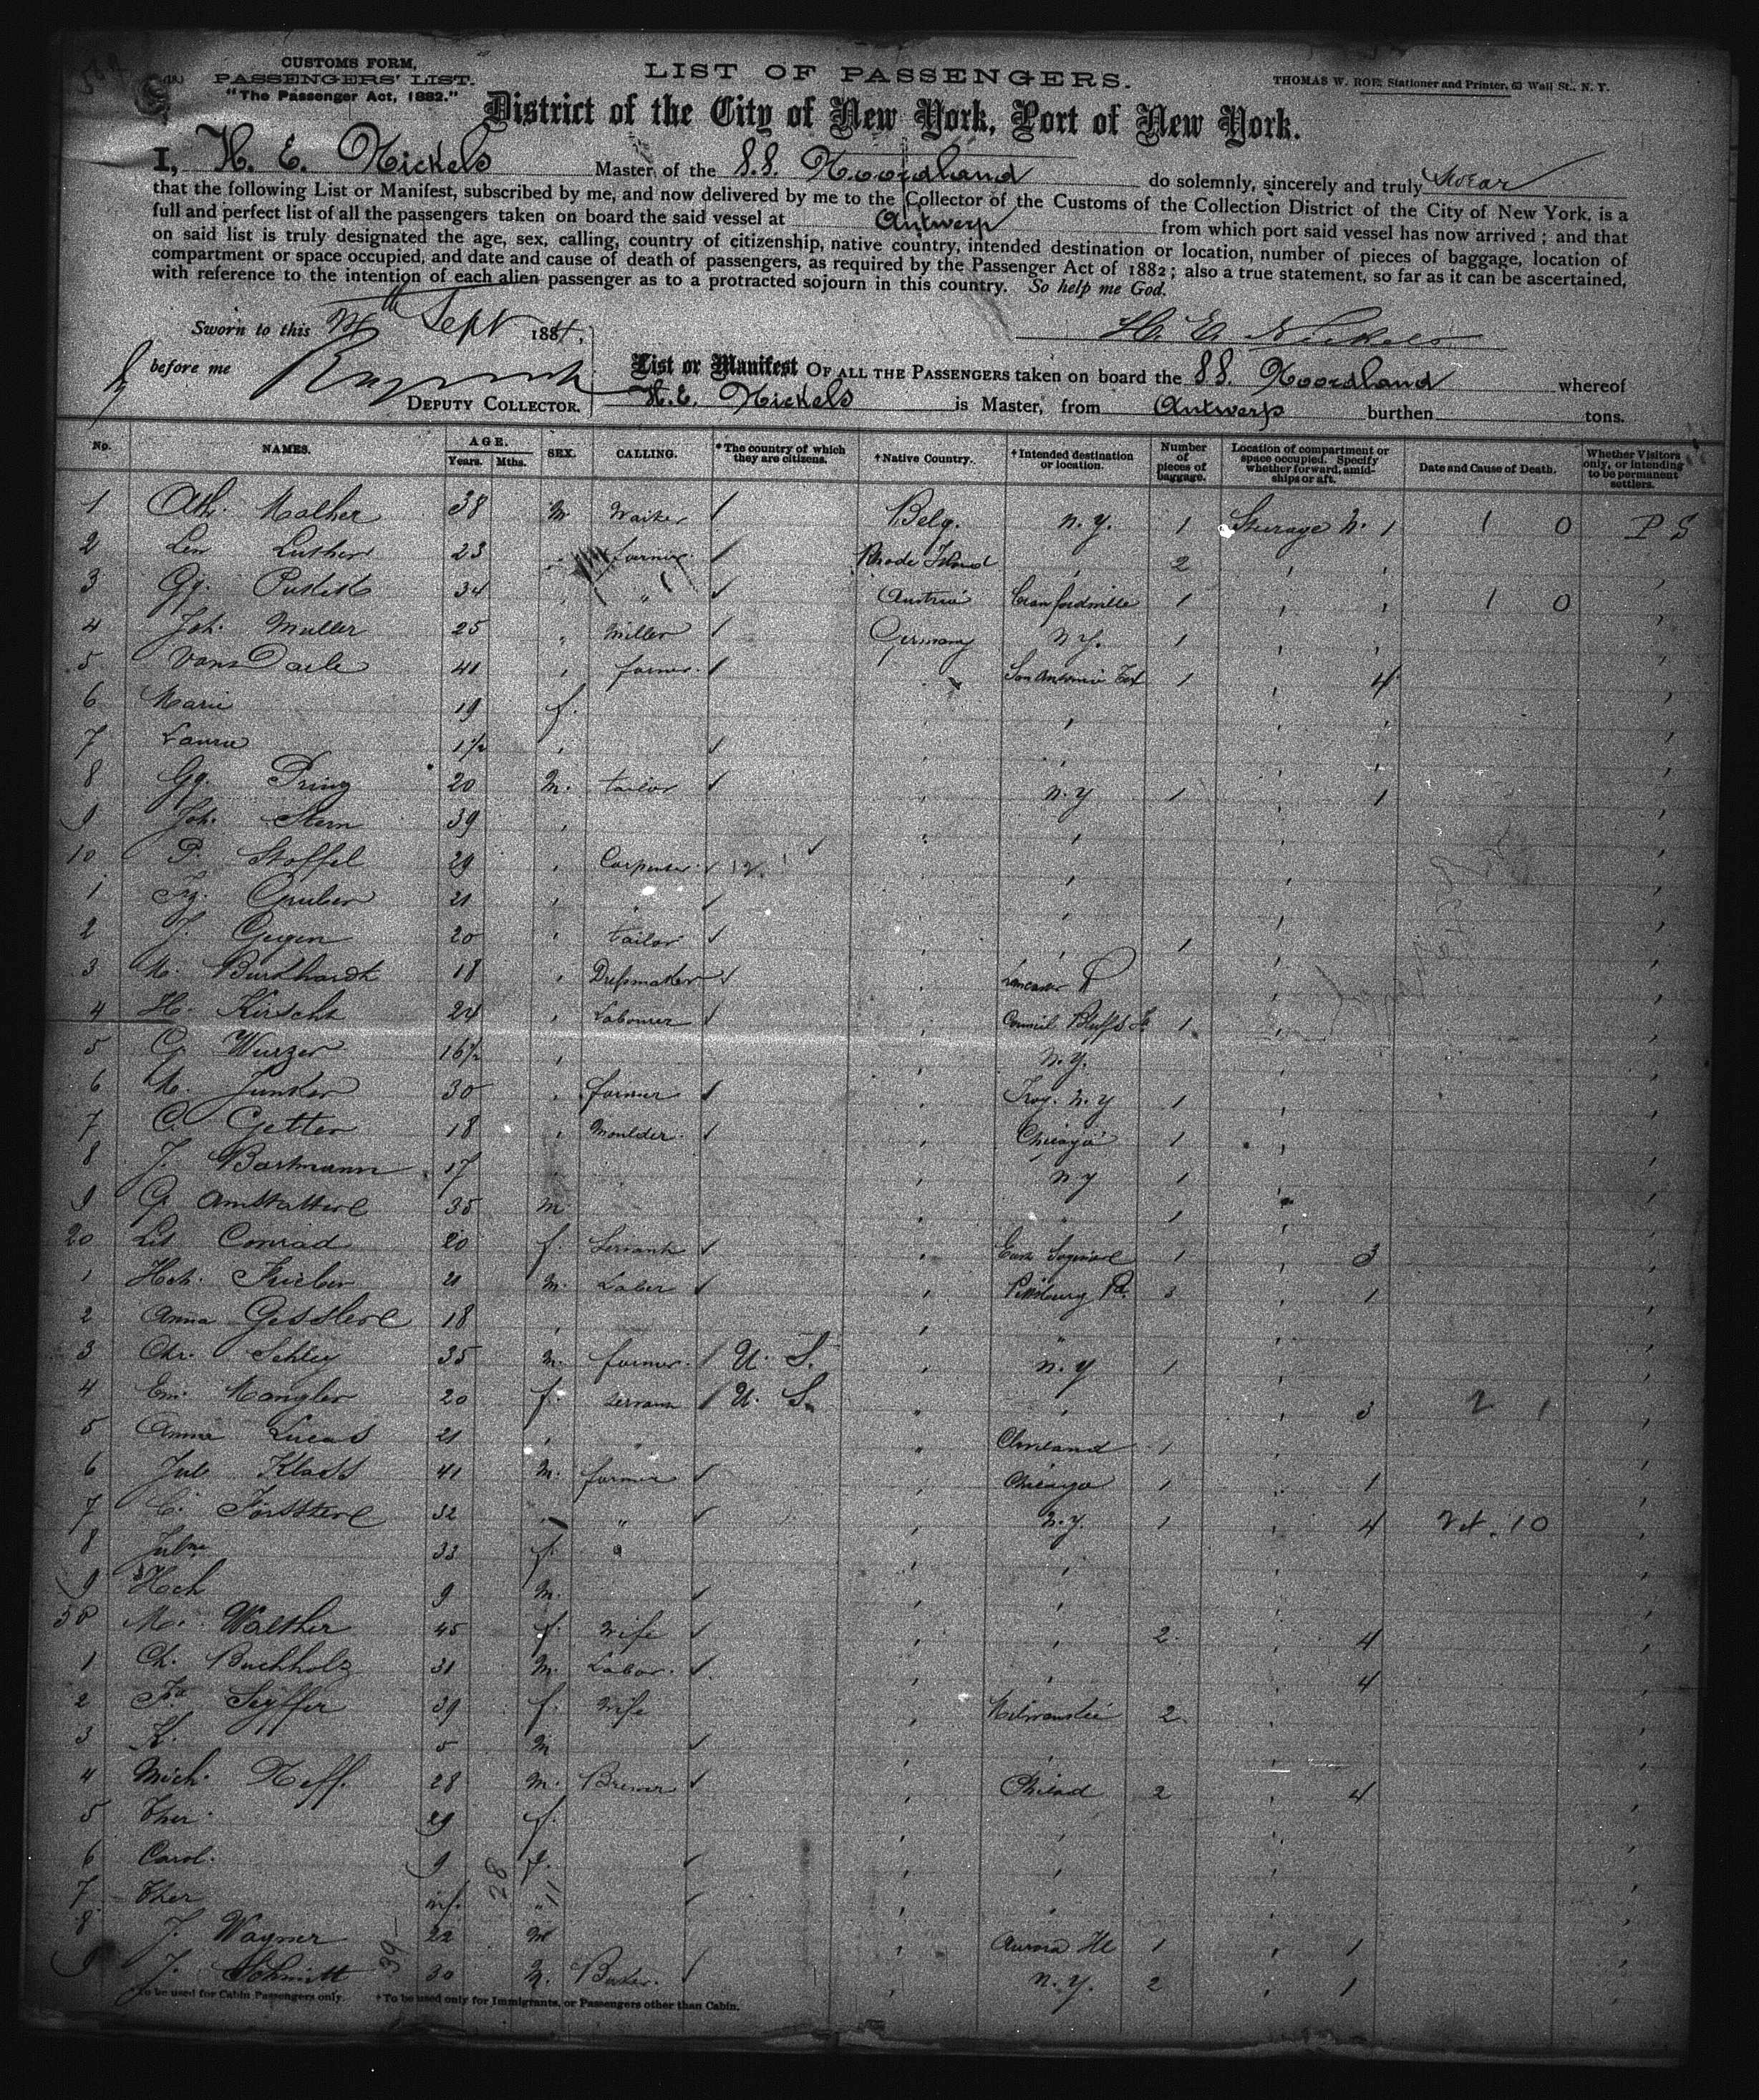 CUSTOMS FORM,
PASSENGERS' LIST.
"The Passenger Act, 1882."
LIST OF PASSENGERS.
THOMAS W. ROE, Stationer and Printer, 63 Wall St., N. Y.
District of the City of New York, Port of New York.
I, H. E. Nickels Master of the S.S. Noordland do solemnly, sincerely and truly swear
that the following List or Manifest, subscribed by me, and now delivered by me to the Collector of the Customs of the Collection District of the City of New York, is a
full and perfect list of all the passengers taken on board the said vessel at Antwerp from which port said vessel has now arrived; and that
on said list is truly designated the age, sex, calling, country of citizenship, native country, intended destination or location, number of pieces of baggage, location of
compartment or space occupied, and date and cause of death of passengers, as required by the Passenger Act of 1882; also a true statement, so far as it can be ascertained,
with reference to the intention of each alien passenger as to a protracted sojourn in this country. So help me God.
Sworn to this th Sept 1884.
H. E. Nickels
before me
DEPUTY COLLECTOR.
List or Manifest OF ALL THE PASSENGERS taken on board the S.S. Noordland whereof
H. E. Nickels is Master, from Antwerp burthen tons.
No. NAMES. AGE. Years. Mths. SEX. CALLING. *The country of which they are citizens. †Native Country. †Intended destination or location. Number of pieces of baggage. Location of compartment or space occupied. Specify whether forward, amidships or aft. Date and Cause of Death. Whether Visitors only, or intending to be permanent settlers.
1 Malher 38 M. Waiter Belg. N. Y. 1 Sturage N. 1 1 0 P S
2 Len Luther 23 farmer Rhode Island 2
3 Gg. 34 " Austria Cranfordville 1 1 0
4 Joh. Muller 25 Miller Germany N.Y. 1
5 Vans Daele 41 farmer San Antonio Tex 1 4
6 Marie 19 f.
7 Laura 1½
8 Gg. Prinz 20 M. tailor N.Y 1 1
9 Joh. Stern 39
10 P. Stoffel 29 Carpenter
1 Fz. Gruber 21
2 J. Gegen 20 tailor 1
3 M. Burkhardt 18 Dressmaker Lancaster P
4 H. Kirscht 24 Labourer Council Bluffs 1
5 G. Wurzer 16½ N.Y.
6 M. Junker 30 farmer Troy. N.Y 1
7 C. Getter 18 Moulder Chicago 1
8 J. Bartmann 17 N.Y 1
9 G. 35 M 1
20 Conrad 20 f. Servant East Saginaw 1 3
1 Hch. Frieber 21 M. Laber Pittsburg Pa. 3 1
2 Anna 18 "
3 Chr. Schley 35 M. farmer U. S. N.Y 1
4 Em. Mangler 20 f. servant U. S. 3 2 1
5 Anna Lucas 21 " Cleveland 1
6 Jul. Klass 41 M. farmer Chicago 1 1
7 C. 32 " N.Y. 1 4
8 33 f. "
9 Hch 9 M.
30 M. Walther 45 f. Wife 2 4
1 Ch. Buchholz 31 M. Labor. 4
2 Fa Seyffer 39 f. Wife Milwaukee 2
3 K. 5 M
4 Mich. Neff. 28 M. Brewer Philad 2 4
5 Ther. 29 f.
6 Carol. 9 f.
7 Ther inf. "
8 J. Wagner 22 M Aurora Ill 1 1
9 J. Schmitt 30 M. Baker. N.Y. 2 1
28 11
39
*To be used for Cabin Passengers only. †To be used only for Immigrants, or Passengers other than Cabin.